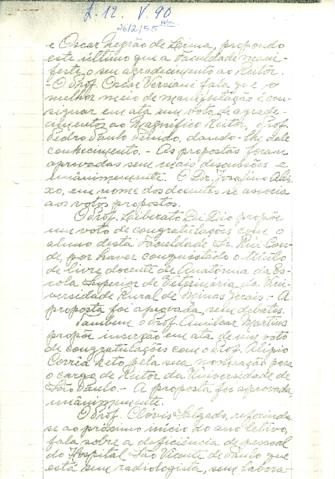 L. 12. V. 90
26/2/55
e Oscar Negrão de Lima, propondo
este último que a Faculdade mani-
feste o seu agradecimento ao Reitor.
- O Prof. Oscar Versiani fala que o
melhor meio de manifestação é con-
signar em ata um voto de agrade-
cimento ao Magnífico Reitor, Prof.
Pedro Paulo Penido, dando-lhe
conhecimento. - As propostas foram
aprovadas sem mais discussões e
unanimemente. O Dr. Josefino Alei-
xo, em nome dos docentes se associa
aos votos propostos.
O Prof. Liberato Di Dio propõe
um voto de congratulações com o
aluno desta Faculdade Sr. Rui Con-
de por haver conquistado o título
de livre docente de Anatomia da Es-
cola Superior de Veterinária da Uni-
versidade Rural de Minas Gerais. - A
proposta foi aprovada sem debates.
Também o Prof. Amilcar Martins
propõe inserção em ata de um voto
de congratulações com o Prof. Alipio
Corrêa Neto pela sua nomeação para
o cargo de Reitor da Universidade de
São Paulo. - A proposta foi aprovada
unanimemente.
O Prof. Clóvis Salgado, referindo-
se ao próximo início do ano letivo,
fala sobre a deficiência de pessoal
do Hospital São Vicente de Paulo que
está sem radiologista, sem labora-